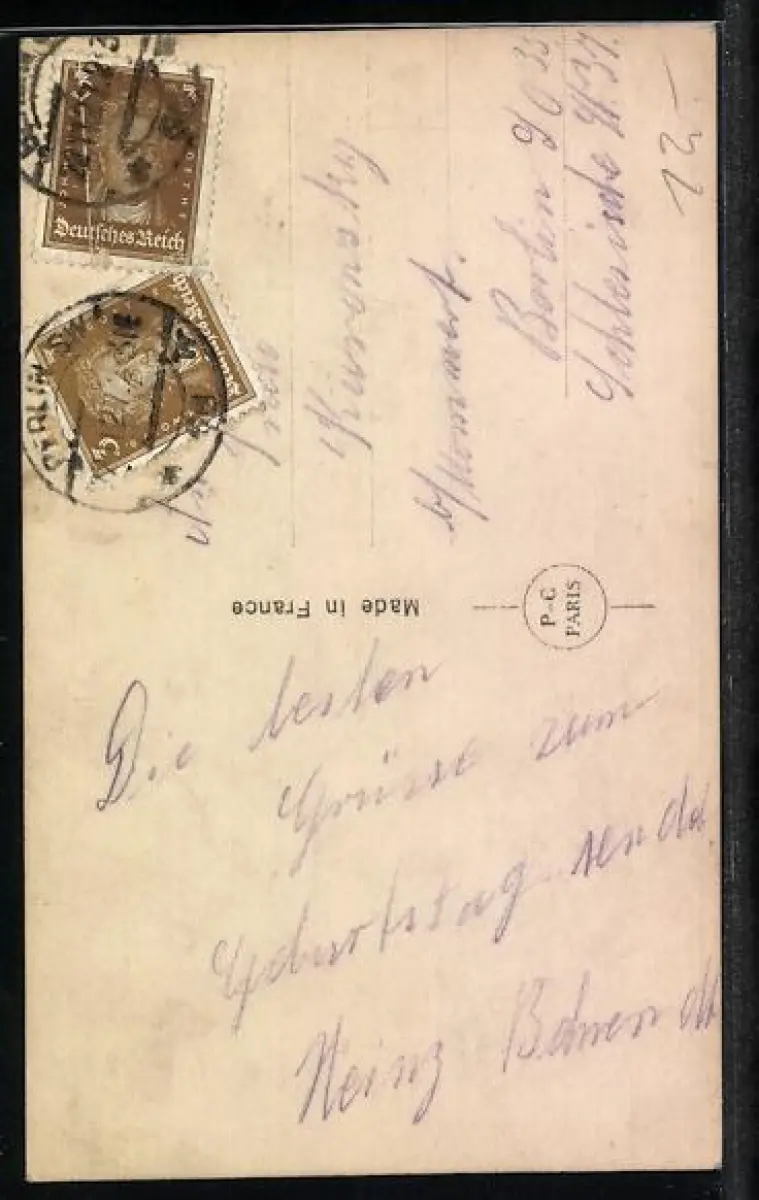 Deutsches Reich
3
Deutsches Reich
BERLIN SW
Kuronsky
b/
Berlin SO 33
Schlesische Str 37.
12,-
Made in France
P-C
PARIS
Die besten
Grüsse zum
Geburtstag sendet
Heinz